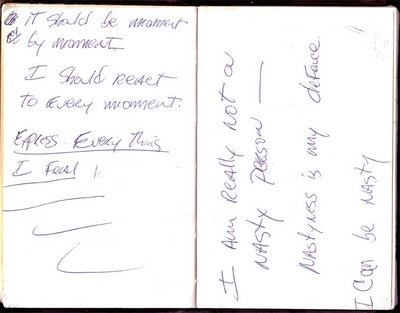 It should be moment
by moment
I should react
to every moment.
Express Every Thing
I Feeal
I Am Really Not a
Nasty Person —
Nastyness is my defence
I Can be Nasty